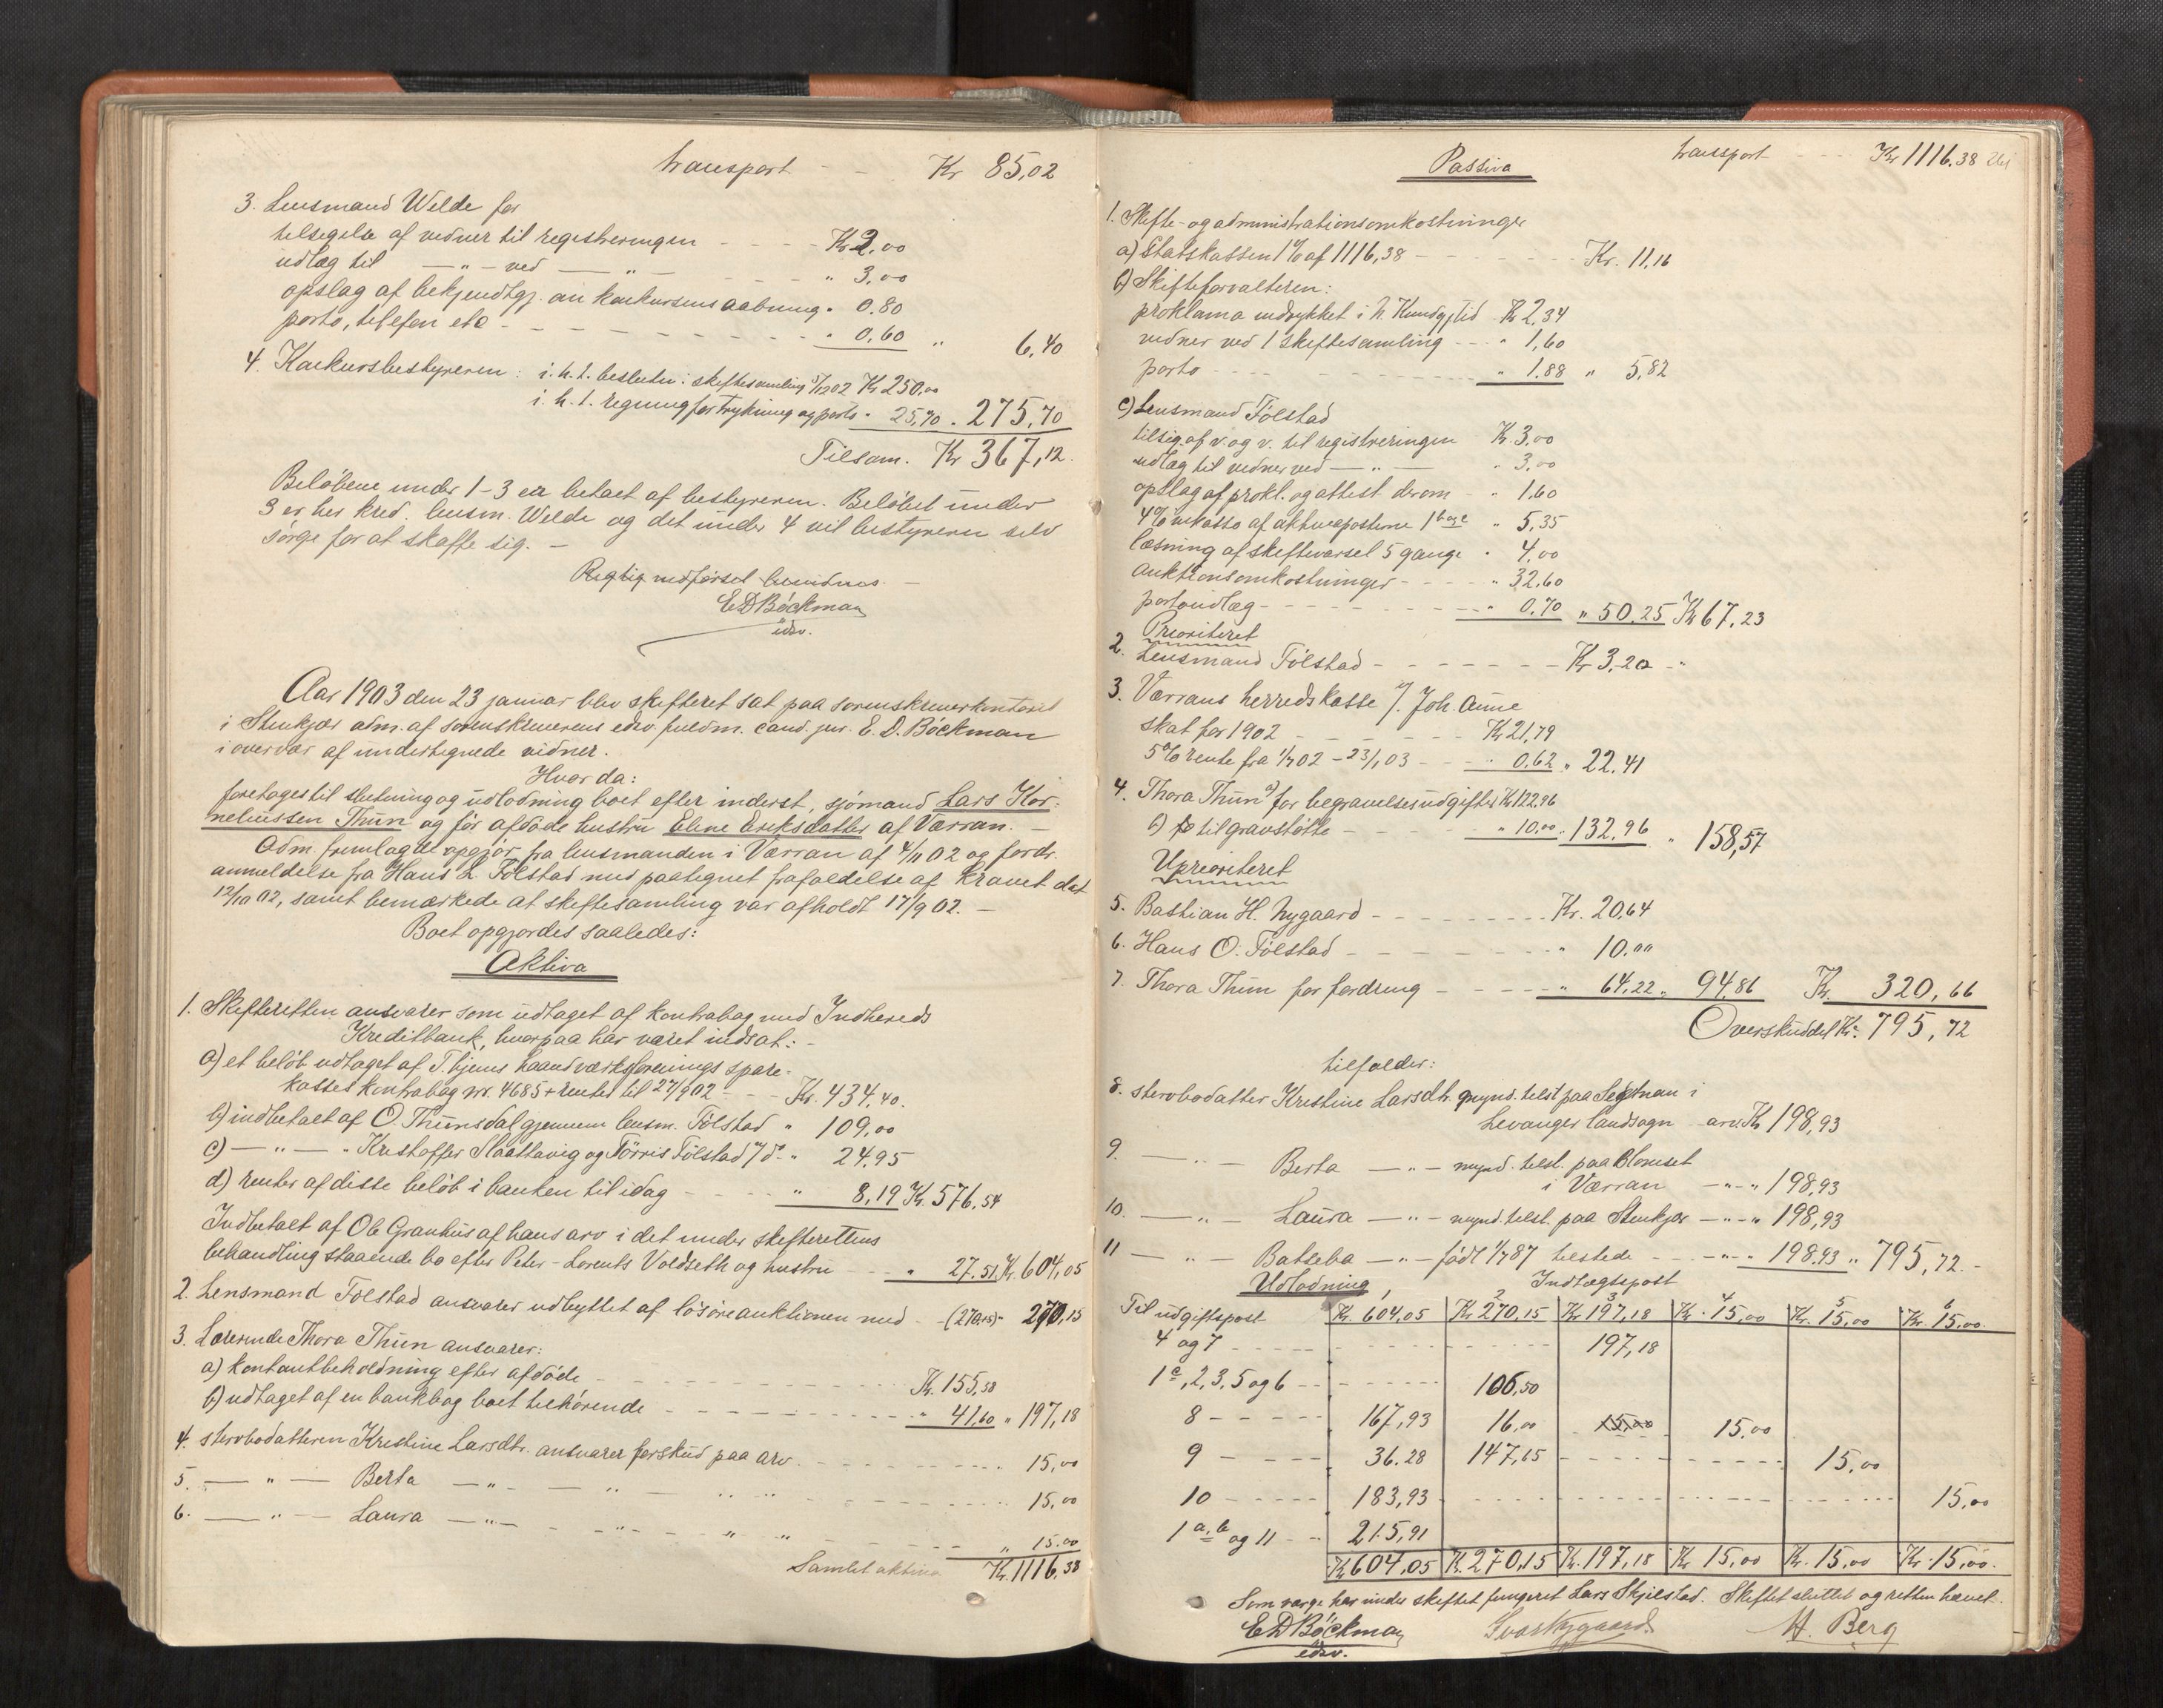 transport - - Kr 85,02
3. Lensmand Welde for
tilsigelse af vidner til registreringen - - - - Kr 2,00
udlæg til — " — ved — " — - - - " 3,00
opslag af bekjendtgj. om konkursens aabning " 0.80
porto, telefon etc - - - - - - - " 0,60 " 6,40
4. Konkursbestyreren: i.h.t. beslutn. i skiftesamling 5/12 02 Kr 250,00
i.h.t. regning for trykning og porto " 25,70 " 275,70
Tilsam. Kr 367,12.
Beløbene under 1-3 er betalt af bestyreren. Beløbet under
3 er her kred. lensm. Welde og det under 4 vil bestyreren selv
sørge for at skaffe sig. —
Rigtig udførsel bevidnes. —
E D Böckman
edsv.
Aar 1903 den 23 januar blev skifteret sat paa sorenskriverkontoret
i Stenkjær adm. af sorenskriverens edsv. fuldm. cand. jur. E. D. Böckman
i overvær af undertegnede vidner.
Hvor da:
foretages til slutning og udlodning boet efter inderst, sjömand Lars Kor-
neliussen Thun og før afdøde hustru Eline Eriksdatter af Værran. —
Adm. fremlagde opgjör fra lensmanden i Værran af 4/11 02 og fordr.
anmeldelse fra Hans L. Følstad med paategnet frafaldelse af kravet dat
12/10 02, samt bemærkede at skiftesamling var afholdt 17/9 02. —
Boet opgjordes saaledes:
Aktiva
1. Skifteretten ansvarer som udtaget af kontrabog med Indhereds
Kreditbank, hvorpaa har været indsat: -
a) et beløb udtaget af T.hjems haandværksforenings spare-
kasses kontrabog nr. 4685 + renter til 27/9 02 - - Kr. 434,40.
b) indbetalt af O. Thunsdal gjennem lensm. Følstad " 109,00
c) — " — " Kristoffer Slaattavig og Tørris Følstad v/ do " 24,95
d) renter af disse beløb i banken til idag - - - " 8,19 Kr. 576,54
Indbetalt af Ole Granhus af hans arv i det under skifterettens
behandling staaende bo efter Peter-Lorents Voldseth og hustru - - " 27.51 Kr. 604,05
2. Lensmand Følstad ansvarer udbyttet af løsøreauktionen med - (270,15) - 270,15
3. Lærerinde Thora Thun ansvarer:
a) kontantbeholdning efter afdøde - - - - - Kr. 155,58
b) udtaget af en bankbog boet tilhørende - - - - - " 41,60 " 197,18
4. stervbodatteren Kristine Larsdtr. ansvarer forskud paa arv - - - - " 15,00
5. — " — Berta — " — - " - " " - - - - 15,00
6. — " — Laura — " — - " - " " - - - - " 15.00
Samlet aktiva Kr. 1116,38
Passiva transport - - - Kr 1116.38 261
1. Skifte- og administrationsomkostninger
a) Statskassen 1% af 1116,38 - - - - - - - Kr. 11,16
b) Skifteforvalteren:
proklama indrykket i N. Kundgj.tid. Kr 2,34
vidner ved 1 skiftesamling - - - " 1,60
porto - - - - - - - " 1.88 " 5,82
c) Lensmand Følstad
tilsig. af v. og v. til registreringen Kr. 3,00
udlæg til vidner ved — " — " 3,00
opslag af prokl. og attest derom - " 1,60
4% inkasso af aktivaposterne 1 b og c " 5,35
læsning af skiftevarsel 5 gange " 4,00
Auktionsomkostninger - - - - - " 32,60
portoudlæg - - - - - - - " 0.70 " 50,25 Kr 67,23
Prioriteret
2. Lensmand Følstad - - - - - - Kr 3,20 - "
3. Værrans herredskasse v/. Joh. Aune
skat for 1902 - - - - - - Kr 21,79
5% rente fra 1/7 02 - 23/1 03 - - - " 0,62 " 22,41
4. Thora Thun a) for begravelsesudgifter Kr 122,96
b) til gravstøtte - - - - " 10,00 " 132,96 " 158,57
Uprioriteret
5. Bastian H. Nygaard - - - - - - - Kr. 20,64
6. Hans O. Følstad - - - - - - - " 10,00
7. Thora Thun for fordring - - - - - " 64,22 " 94,86 Kr. 320,66
Overskuddet Kr. 795,72
tilfalder:
8. stervbodatter Kristine Larsdtr. mynd. tilst. paa Segtnan i
Levanger landsogn arv. Kr 198,93
9. — " — Berta — " — mynd. tilst. paa Blomset
i Værran — " — " 198,93
10. — " — Laura — " — mynd. tilst. paa Stenkjær — " — " 198,93
11 — " — Batseba — " — født 1/7 87 tilstede - - — " — " 198.93 " 795,72. -
Udlodning Indtægtspost
Til udgiftspost 1 Kr. 604,05 2 Kr 270,15 3 Kr 197,18 4 Kr. 15,00 5 Kr. 15,00 6 Kr. 15,00.
4 og 7 - - - - - - - 197,18
1 c, 2, 3, 5 og 6 - - - - - 106,50
8 - - - - - 167,93 16,00 15,00 15.00
9 - - - - 36.28 147,65 - - - - 15,00
10 - - - - - 183,93 - - - - - 15,00
1 a, b og 11 - - 215,91
Kr 604,05 Kr. 270,15 Kr. 197,18 Kr 15,00 Kr. 15,00 Kr. 15,00.
Som værge har under skiftet fungeret Lars Skjelstad. Skiftet sluttet og retten hævet.
E D Böckman Ivar Nygaard M. Berg
edsv.